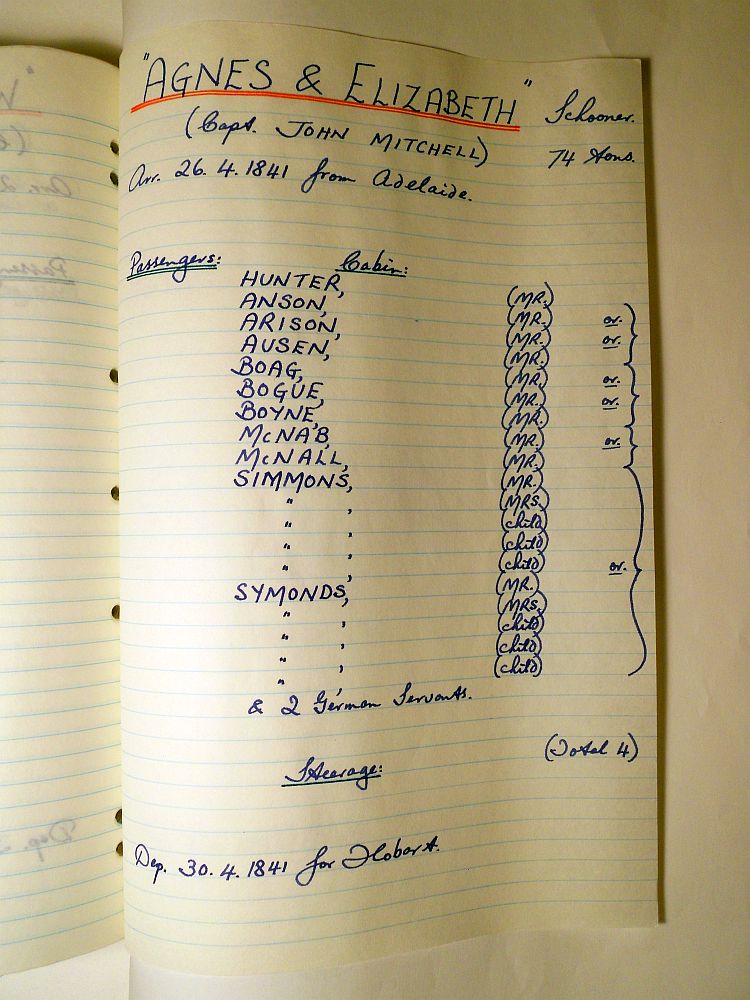 "AGNES & ELIZABETH" Schooner.
(Capt. JOHN MITCHELL) 74 tons.
Arr. 26.4.1841 from Adelaide.
Passengers: Cabin:
HUNTER, (MR.)
ANSON, (MR.) or.
ARISON, (MR.) or.
AUSEN, (MR.)
BOAG, (MR.) or.
BOGUE, (MR.) or.
BOYNE, (MR.)
McNAB, (MR.) or.
McNALL, (MR.)
SIMMONS, (MR.)
" , (MRS.)
" , (child)
" , (child)
" , (child) or.
SYMONDS, (MR.)
" , (MRS.)
" , (child)
" , (child)
" , (child)
& 2 German Servants.
(Total 4)
Steerage:
Dep. 30.4.1841 for Hobart.